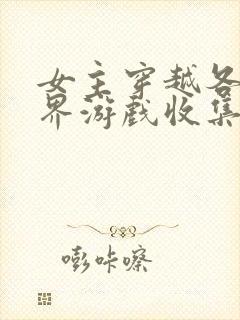 女主穿越各
界游戏收集
嘭咔嚓